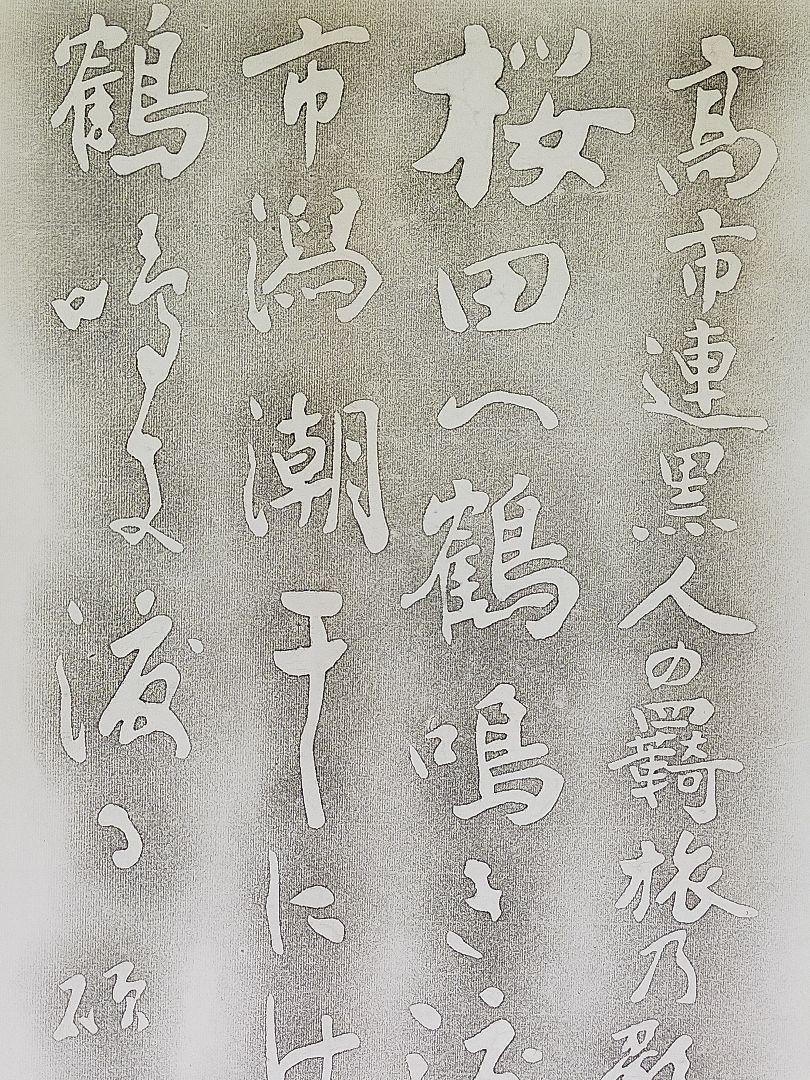 高市連黒人の羈旅乃歌
桜田へ鶴鳴き渡
市潟潮干にけ
鶴鳴き渡る 碩